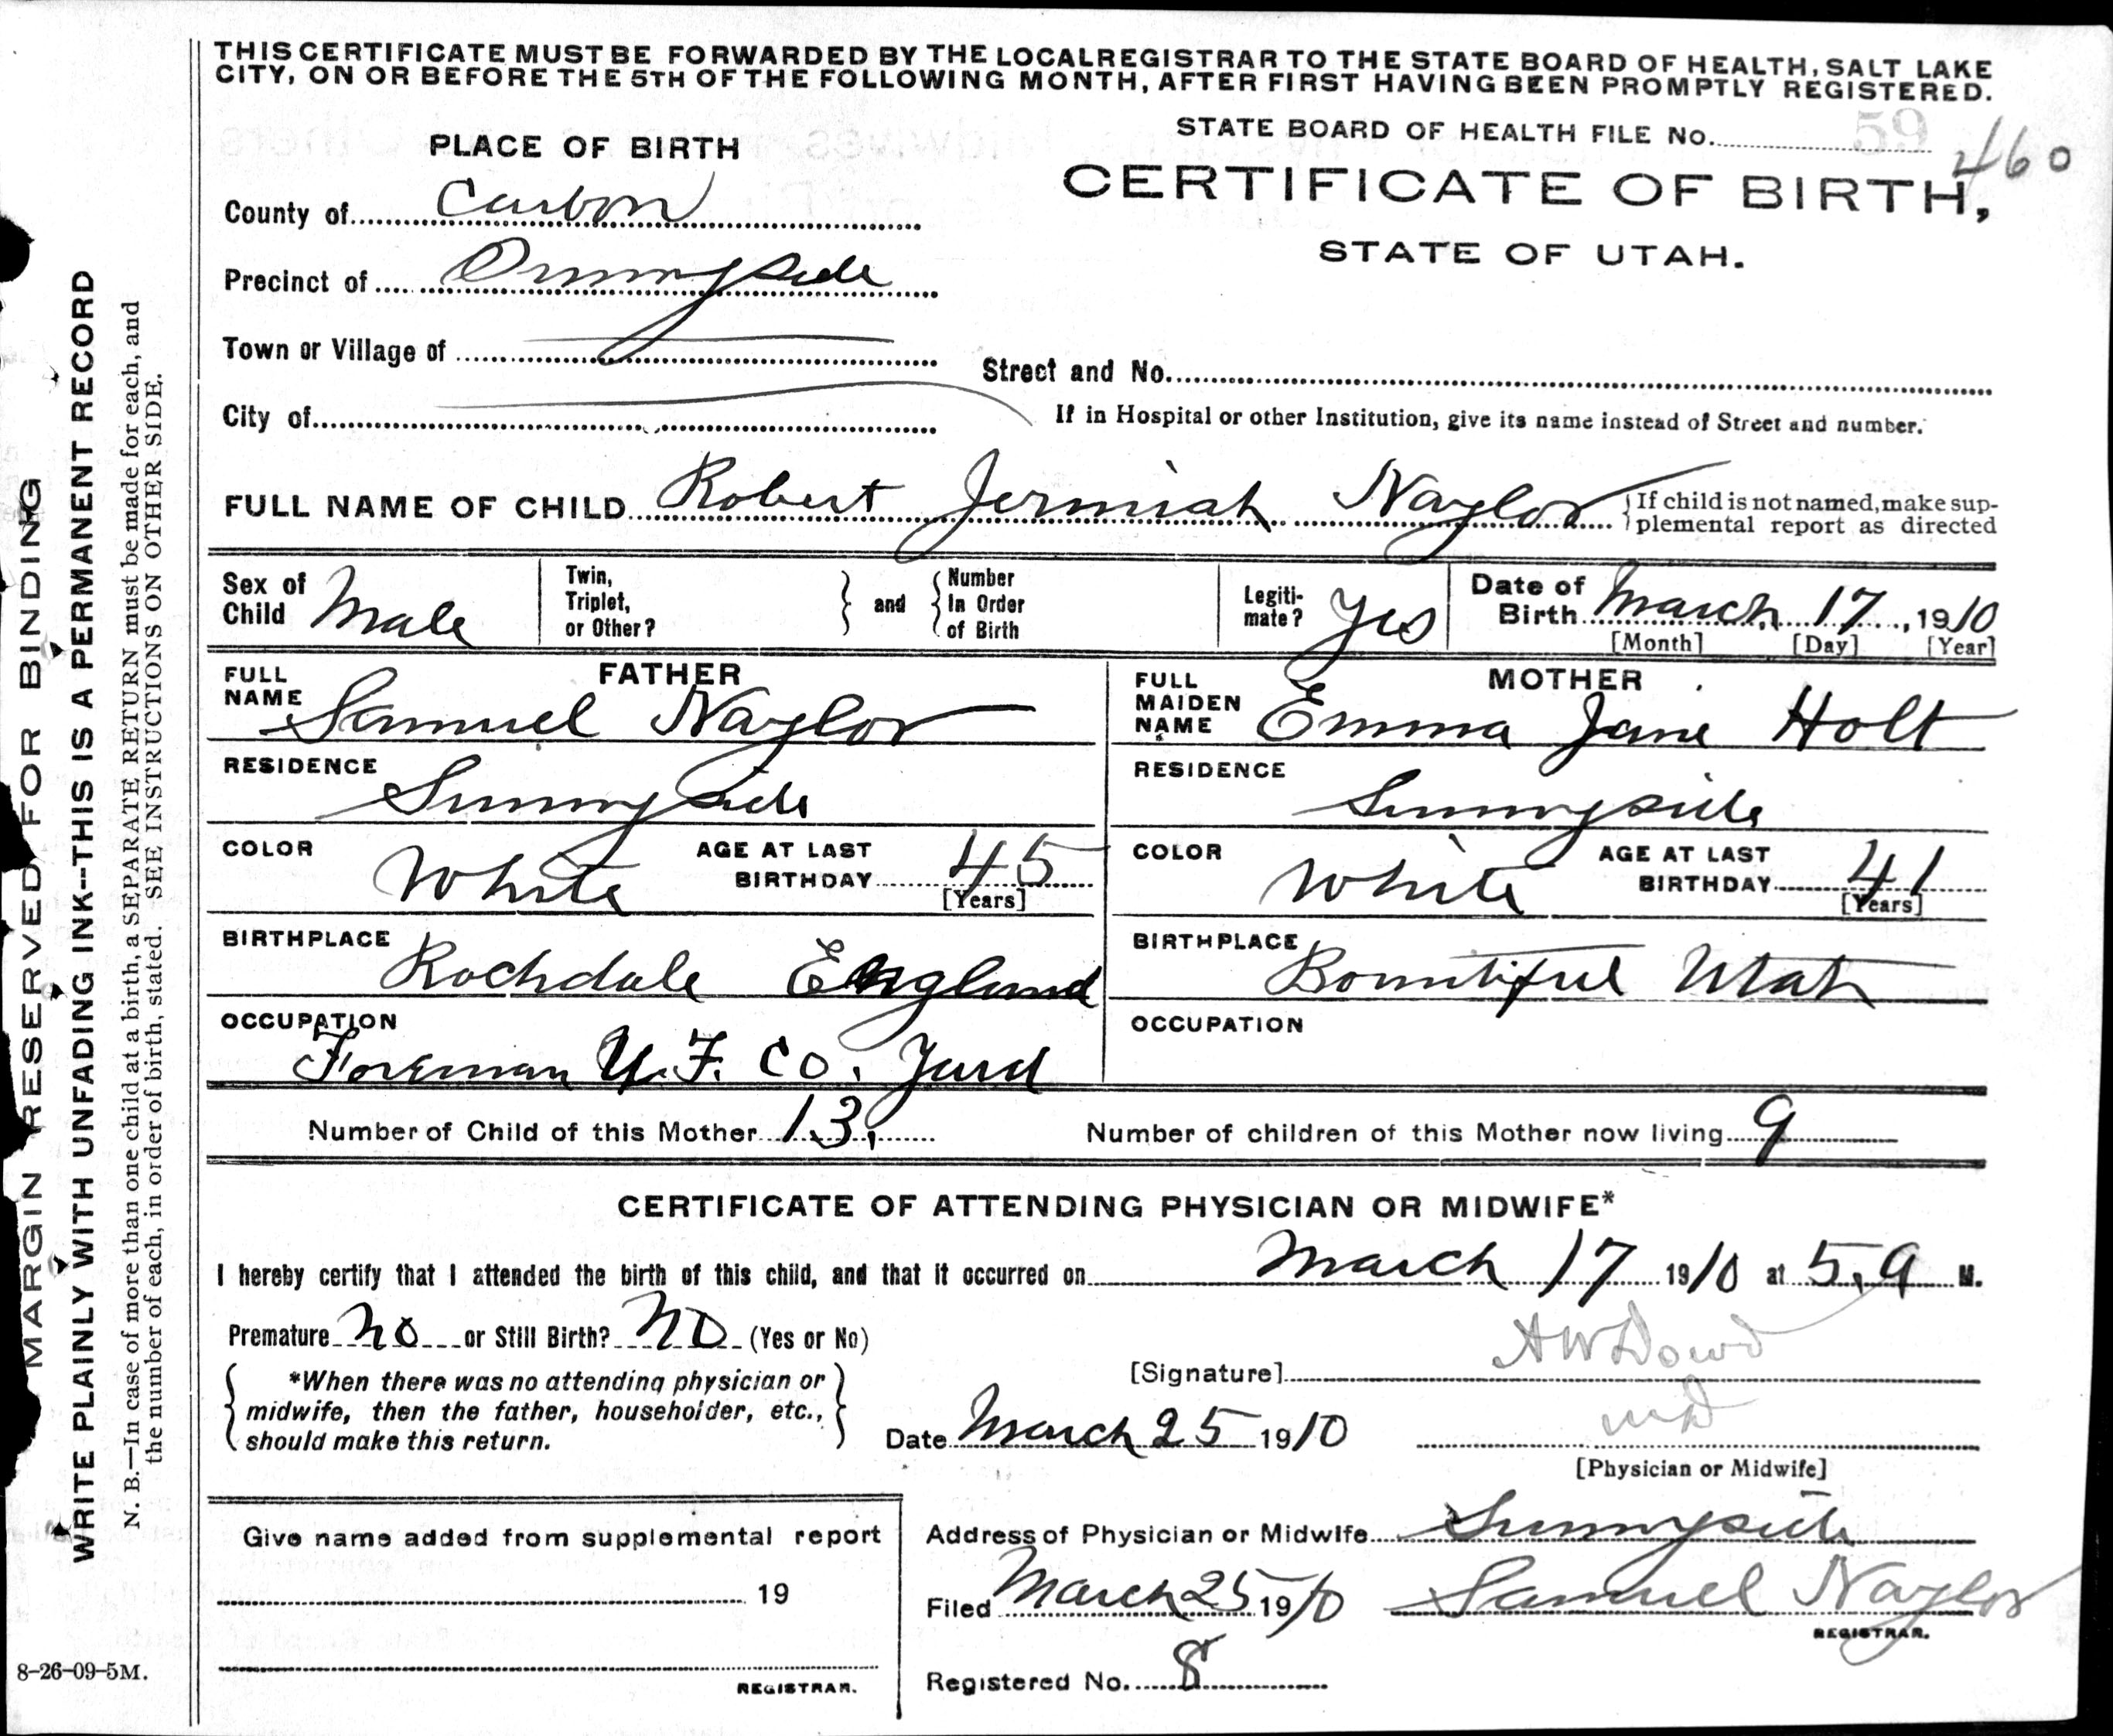 THIS CERTIFICATE MUST BE FORWARDED BY THE LOCAL REGISTRAR TO THE STATE BOARD OF HEALTH, SALT LAKE
CITY, ON OR BEFORE THE 5TH OF THE FOLLOWING MONTH, AFTER FIRST HAVING BEEN PROMPTLY REGISTERED.
STATE BOARD OF HEALTH FILE No. 59
460
PLACE OF BIRTH
CERTIFICATE OF BIRTH,
STATE OF UTAH.
County of Carbon
Precinct of Sunnyside
Town or Village of
Street and No.
City of
If in Hospital or other Institution, give its name instead of Street and number.
FULL NAME OF CHILD Robert Jermiah Naylor
{If child is not named, make sup-
plemental report as directed
Sex of Child Male
Twin, Triplet, or Other? } and { Number In Order of Birth
Legiti-mate? Yes
Date of Birth March 17, 1910
[Month] [Day] [Year]
FATHER
FULL NAME Samuel Naylor
RESIDENCE Sunnyside
COLOR White AGE AT LAST BIRTHDAY 45
[Years]
BIRTHPLACE Rochdale England
OCCUPATION Foreman U.F. Co. Yard
MOTHER
FULL MAIDEN NAME Emma Jane Holt
RESIDENCE Sunnyside
COLOR White AGE AT LAST BIRTHDAY 41
[Years]
BIRTHPLACE Bountiful Utah
OCCUPATION
Number of Child of this Mother 13, Number of children of this Mother now living 9
CERTIFICATE OF ATTENDING PHYSICIAN OR MIDWIFE*
I hereby certify that I attended the birth of this child, and that it occurred on March 17 1910 at 5, a M.
Premature no or Still Birth? no (Yes or No)
{ *When there was no attending physician or }
midwife, then the father, householder, etc.,
should make this return.
[Signature] A W Dowd
MD
Date March 25 1910
[Physician or Midwife]
Give name added from supplemental report
19
REGISTRAR.
Address of Physician or Midwife Sunnyside
Filed March 25 1910 Samuel Naylor
REGISTRAR.
Registered No. 8
8-26-09-5M.
MARGIN RESERVED FOR BINDING
WRITE PLAINLY WITH UNFADING INK--THIS IS A PERMANENT RECORD
N. B.—In case of more than one child at a birth, a SEPARATE RETURN must be made for each, and
the number of each, in order of birth, stated. SEE INSTRUCTIONS ON OTHER SIDE.